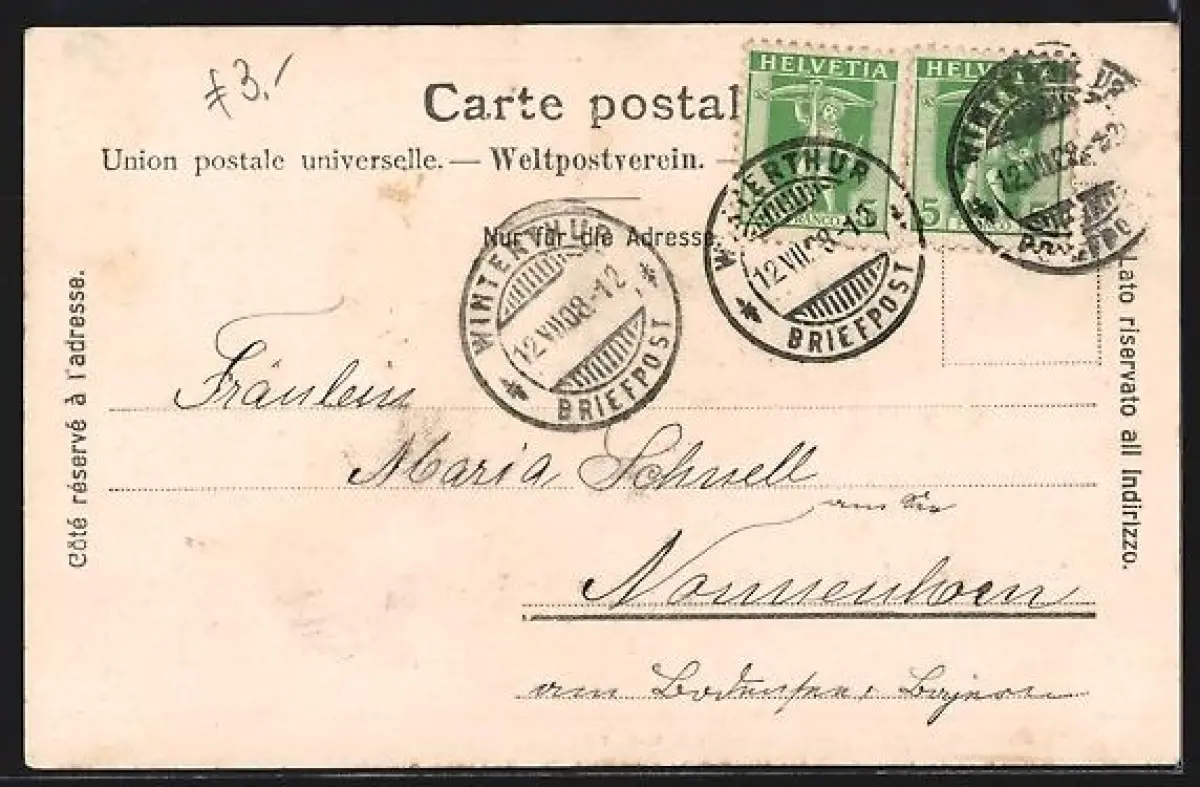 ≠ 3.-
Carte postal
Union postale universelle. — Weltpostverein. -
Nur für die Adresse.
HELVETIA
FRANCO
5
HELVETIA
5
FRANCO
WINTERTHUR
12.VII.08.-12
BRIEFPOST
WINTERTHUR
12.VII.08.-12
BRIEFPOST
12.VII.08.-12
BRIEFPO
Côté réservé à l'adresse.
Lato riservato all Indirizzo.
Fräulein
Maria Schnell
Nonnenhorn
am Bodensee, Bayern